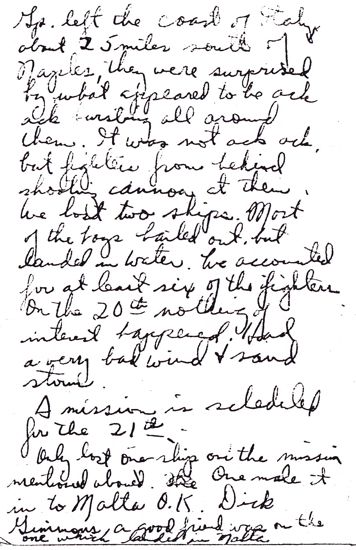 Gp. left the coast of Italy
about 25 miles south of
Naples, they were surprised
by what appeared to be ack
ack bursting all around
them. It was not ack ack,
but fighters from behind
shooting cannon at them.
We lost two ships. Most
of the boys bailed out, but
landed in water. We accounted
for at least six of the fighters
On the 20th nothing of
interest happened. Had
a very bad wind & sand
storm.
A mission is scheduled
for the 21st.
Only lost one ship on the mission
mentioned above. One made it
in to Malta O.K. Dick
Simmons, a good friend was on the
one which landed in Malta